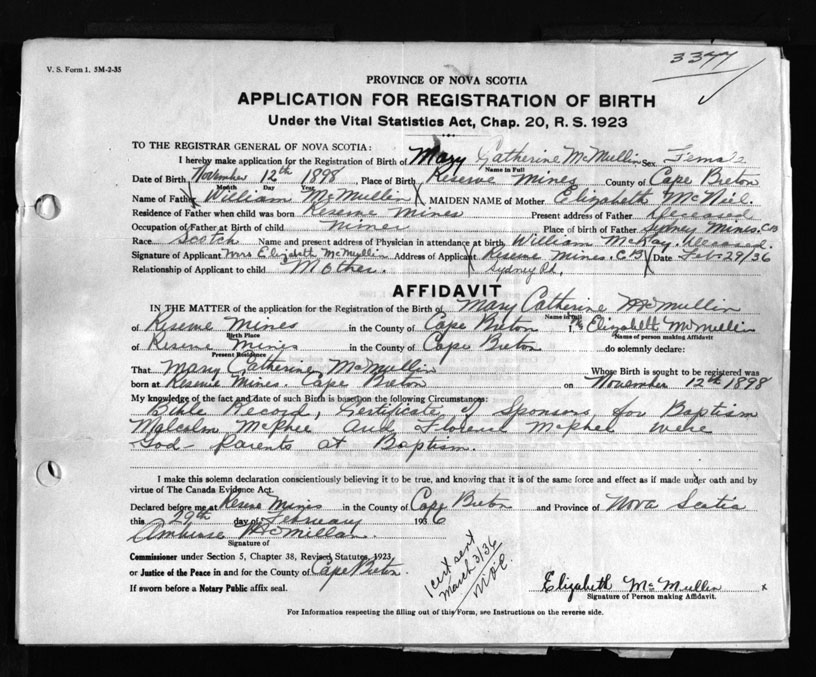 V. S. Form 1. 5M-2-35
3377
PROVINCE OF NOVA SCOTIA
APPLICATION FOR REGISTRATION OF BIRTH
Under the Vital Statistics Act, Chap. 20, R. S. 1923
TO THE REGISTRAR GENERAL OF NOVA SCOTIA:
I hereby make application for the Registration of Birth of Mary Catherine McMullin Sex Female
Name in Full
Date of Birth November 12th 1898 Place of Birth Reserve Mines County of Cape Breton
Month Day Year
Name of Father William McMullin MAIDEN NAME of Mother Elizabeth McNeil
Residence of Father when child was born Reserve Mines Present address of Father Deceased
Occupation of Father at Birth of child Miner Place of birth of Father Sydney Mines. C B
Race Scotch Name and present address of Physician in attendance at birth William McKay. Deceased.
Signature of Applicant Mrs Elizabeth McMullin Address of Applicant Reserve Mines. C B Date Feb. 29/36
Relationship of Applicant to child Mother. Sydney Rd.
AFFIDAVIT
IN THE MATTER of the application for the Registration of the Birth of Mary Catherine McMullin
Name in full
of Reserve Mines in the County of Cape Breton I, Elizabeth McMullin
Birth Place Name of person making Affidavit
of Reserve Mines in the County of Cape Breton do solemnly declare:
Present Residence
That Mary Catherine McMullin Whose Birth is sought to be registered was
born at Reserve Mines. Cape Breton on November 12th 1898
My knowledge of the fact and date of such Birth is based on the following Circumstances:
Bible Record, Certificate of Sponsors for Baptism
Malcolm McPhee and Florence McPhee were
God-parents at Baptism.
I make this solemn declaration conscientiously believing it to be true, and knowing that it is of the same force and effect as if made under oath and by
virtue of The Canada Evidence Act.
Declared before me at Reserve Mines in the County of Cape Breton and Province of Nova Scotia
this 29th day of February 1936
Ambrose McMillan.
Signature of
Commissioner under Section 5, Chapter 38, Revised Statutes, 1923
or Justice of the Peace in and for the County of Cape Breton.
If sworn before a Notary Public affix seal.
1 cert sent
March 3/36
Elizabeth McMullin x
Signature of Person making Affidavit.
For Information respecting the filling out of this Form, see Instructions on the reverse side.